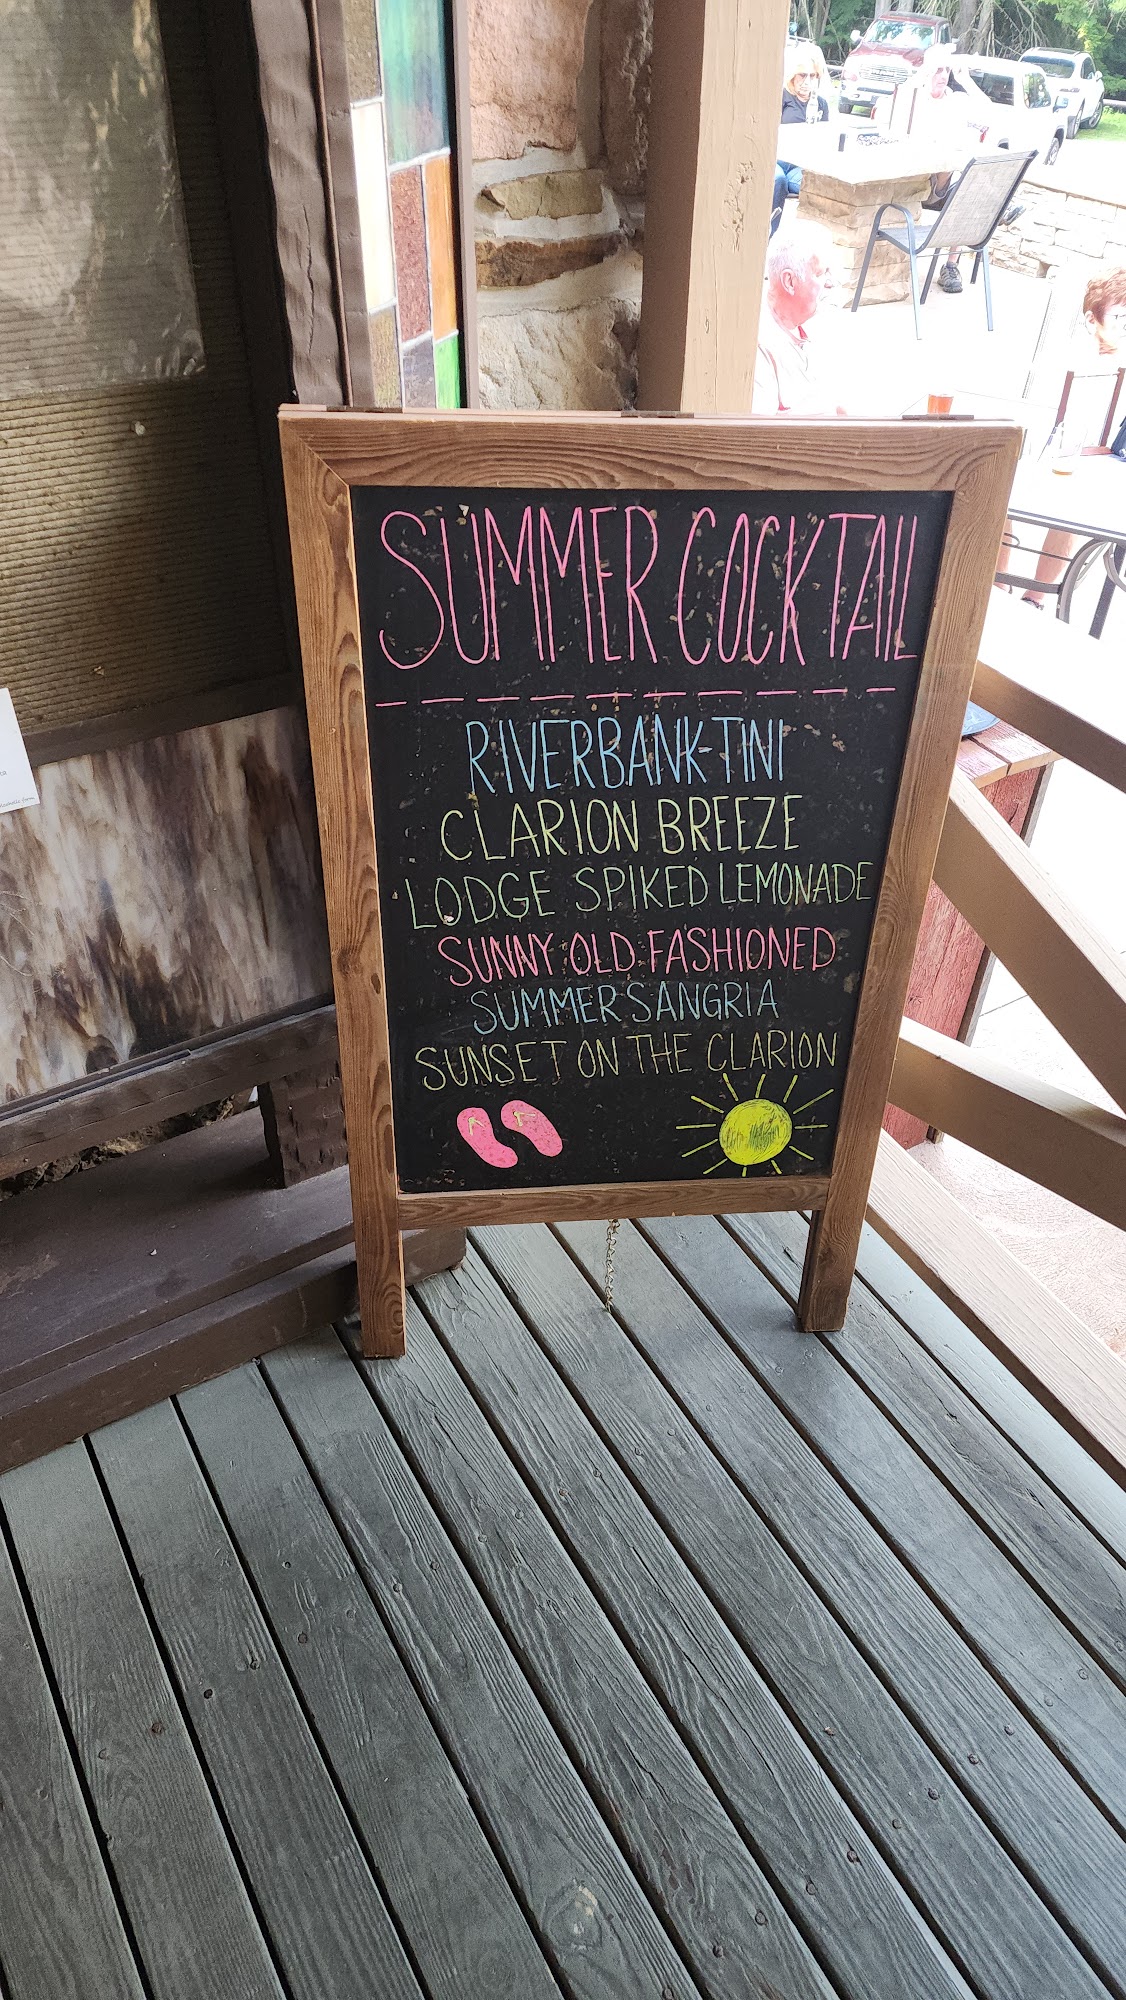 SUMMER COCKTAIL
RIVERBANK-TINI
CLARION BREEZE
LODGE SPIKED LEMONADE
SUNNY OLD FASHIONED
SUMMER SANGRIA
SUNSET ON THE CLARION